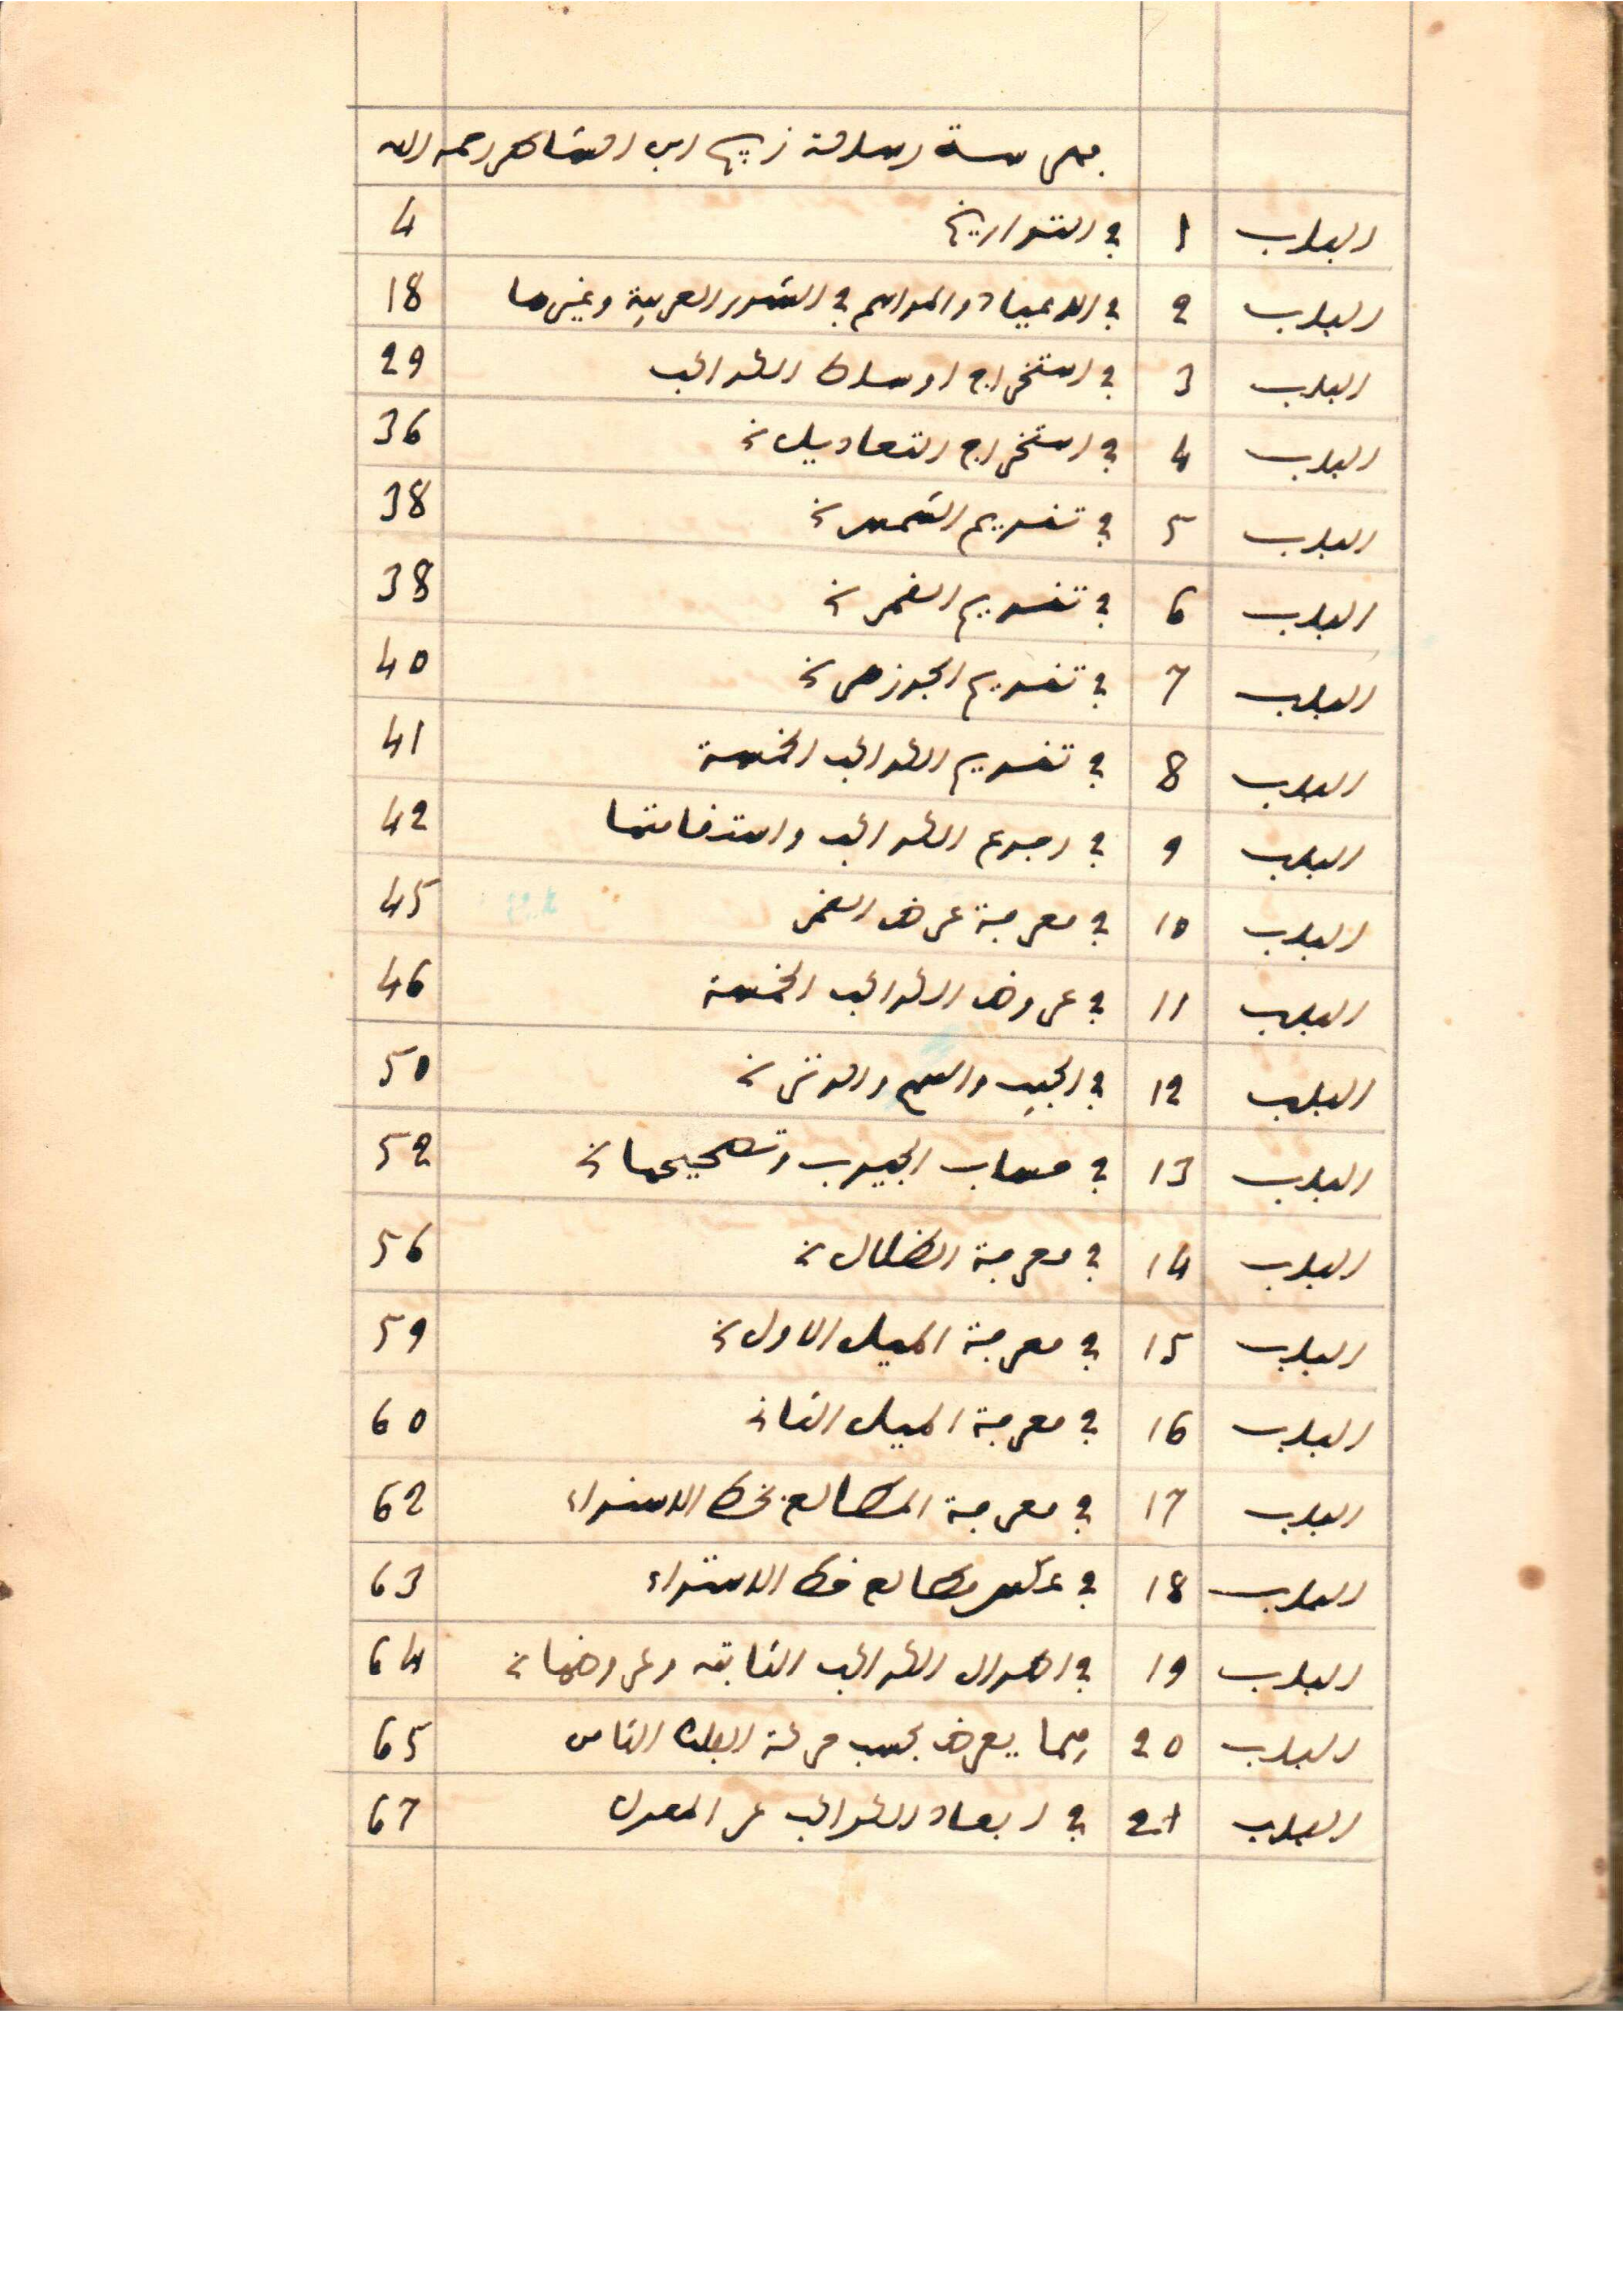 فهرسة رسالة زيج ابن الشاطر رحمه الله
الباب 1 في التواريخ 4
الباب 2 في الاعياد والمواسم في الشهور العربية وغيرها 18
الباب 3 في استخراج اوساط الكواكب 29
الباب 4 في استخراج التعاديل 36
الباب 5 في تقويم الشمس 38
الباب 6 في تقويم القمر 38
الباب 7 في تقويم الجوزهر 40
الباب 8 في تقويم الكواكب الخمسة 41
الباب 9 في رجوع الكواكب واستقامتها 42
الباب 10 في معرفة عرض القمر 45
الباب 11 في عروض الكواكب الخمسة 46
الباب 12 في الجيب والسهم والوتر 50
الباب 13 في حساب الجيوب وتصحيحها 52
الباب 14 في معرفة الظلال 56
الباب 15 في معرفة الميل الاول 59
الباب 16 في معرفة الميل الثاني 60
الباب 17 في معرفة المطالع بخط الاستواء 62
الباب 18 في عكس مطالع خط الاستواء 63
الباب 19 في اطوال الكواكب الثابته وعروضها 64
الباب 20 فيما يعرض بحسب حركة الفلك الثامن 65
الباب 21 في ابعاد الكواكب عن المعدل 67